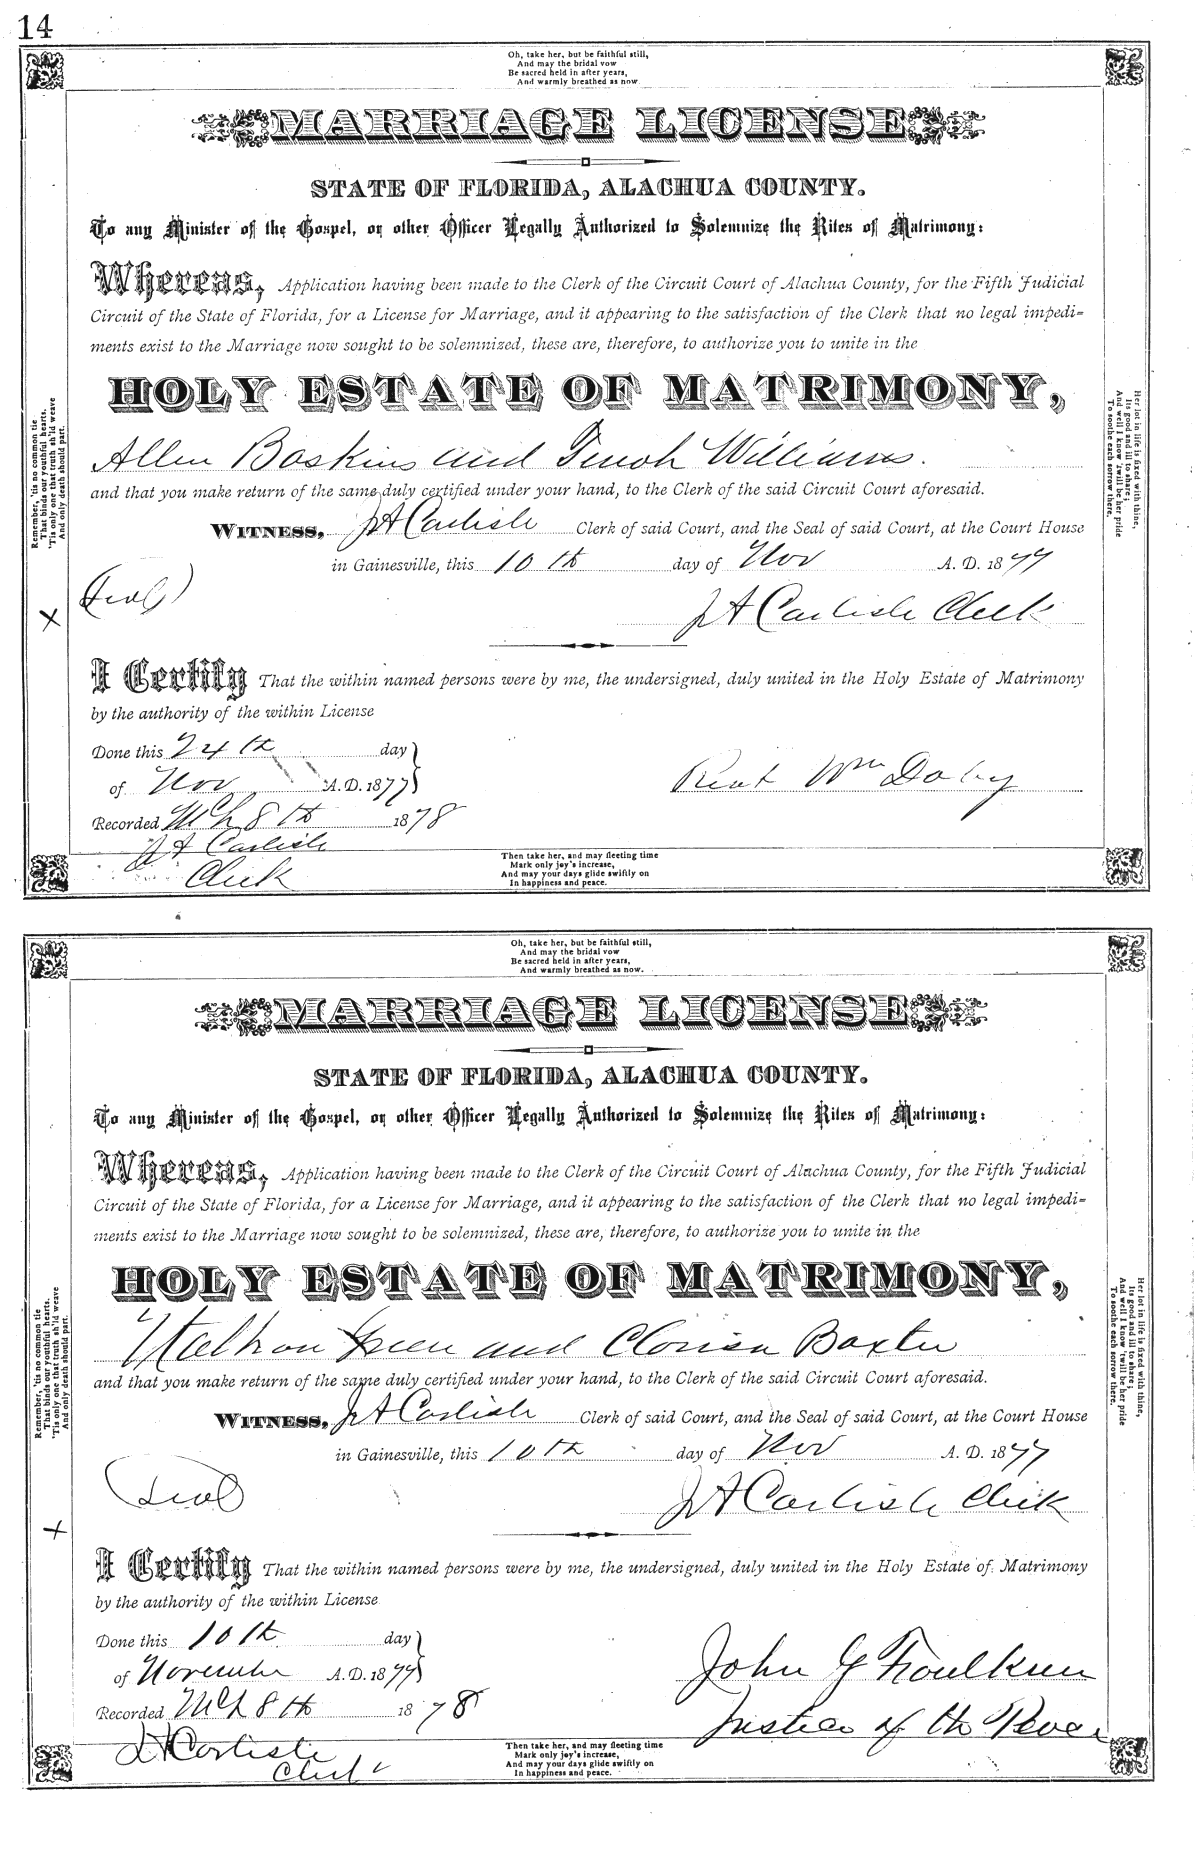 14
Oh, take her, but be faithful still,
And may the bridal vow
Be sacred held in after years,
And warmly breathed as now.
MARRIAGE LICENSE
STATE OF FLORIDA, ALACHUA COUNTY.
To any Minister of the Gospel, or other Officer Legally Authorized to Solemnize the Rites of Matrimony:
Whereas, Application having been made to the Clerk of the Circuit Court of Alachua County, for the Fifth Judicial
Circuit of the State of Florida, for a License for Marriage, and it appearing to the satisfaction of the Clerk that no legal impedi=
ments exist to the Marriage now sought to be solemnized, these are, therefore, to authorize you to unite in the
HOLY ESTATE OF MATRIMONY,
Allen Baskins and Williams.
and that you make return of the same duly certified under your hand, to the Clerk of the said Circuit Court aforesaid.
WITNESS, J A Carlisle Clerk of said Court, and the Seal of said Court, at the Court House
in Gainesville, this 10th day of Nov A. D. 1877
(Seal)
J A Carlisle Clerk
X
I Certify That the within named persons were by me, the undersigned, duly united in the Holy Estate of Matrimony
by the authority of the within License
Done this 24th day
of Nov A. D. 1877
Wm
Recorded Mch 8th 1878
J A Carlisle
Clerk
Then take her, and may fleeting time
Mark only joy's increase,
And may your days glide swiftly on
In happiness and peace.
Remember, 'tis no common tie
That binds our youthful hearts.
'Tis only one that truth sh'ld weave
And only death should part.
Her lot in life is fixed with thine,
Its good and ill to share;
And well I know 'twill be her pride
To soothe each sorrow there.
Oh, take her, but be faithful still,
And may the bridal vow
Be sacred held in after years,
And warmly breathed as now.
MARRIAGE LICENSE
STATE OF FLORIDA, ALACHUA COUNTY.
To any Minister of the Gospel, or other Officer Legally Authorized to Solemnize the Rites of Matrimony:
Whereas, Application having been made to the Clerk of the Circuit Court of Alachua County, for the Fifth Judicial
Circuit of the State of Florida, for a License for Marriage, and it appearing to the satisfaction of the Clerk that no legal impedi=
ments exist to the Marriage now sought to be solemnized, these are, therefore, to authorize you to unite in the
HOLY ESTATE OF MATRIMONY,
Green and Baxter
and that you make return of the same duly certified under your hand, to the Clerk of the said Circuit Court aforesaid.
WITNESS, J A Carlisle Clerk of said Court, and the Seal of said Court, at the Court House
in Gainesville, this 10th day of Nov A. D. 1877
(Seal)
J A Carlisle Clerk
X
I Certify That the within named persons were by me, the undersigned, duly united in the Holy Estate of Matrimony
by the authority of the within License
Done this 10th day
of November A. D. 1877
John G Foulkner
Recorded Mch 8th 1878
Justice of the Peace
J A Carlisle
Clerk
Then take her, and may fleeting time
Mark only joy's increase,
And may your days glide swiftly on
In happiness and peace.
Remember, 'tis no common tie
That binds our youthful hearts.
'Tis only one that truth sh'ld weave
And only death should part.
Her lot in life is fixed with thine,
Its good and ill to share;
And well I know 'twill be her pride
To soothe each sorrow there.